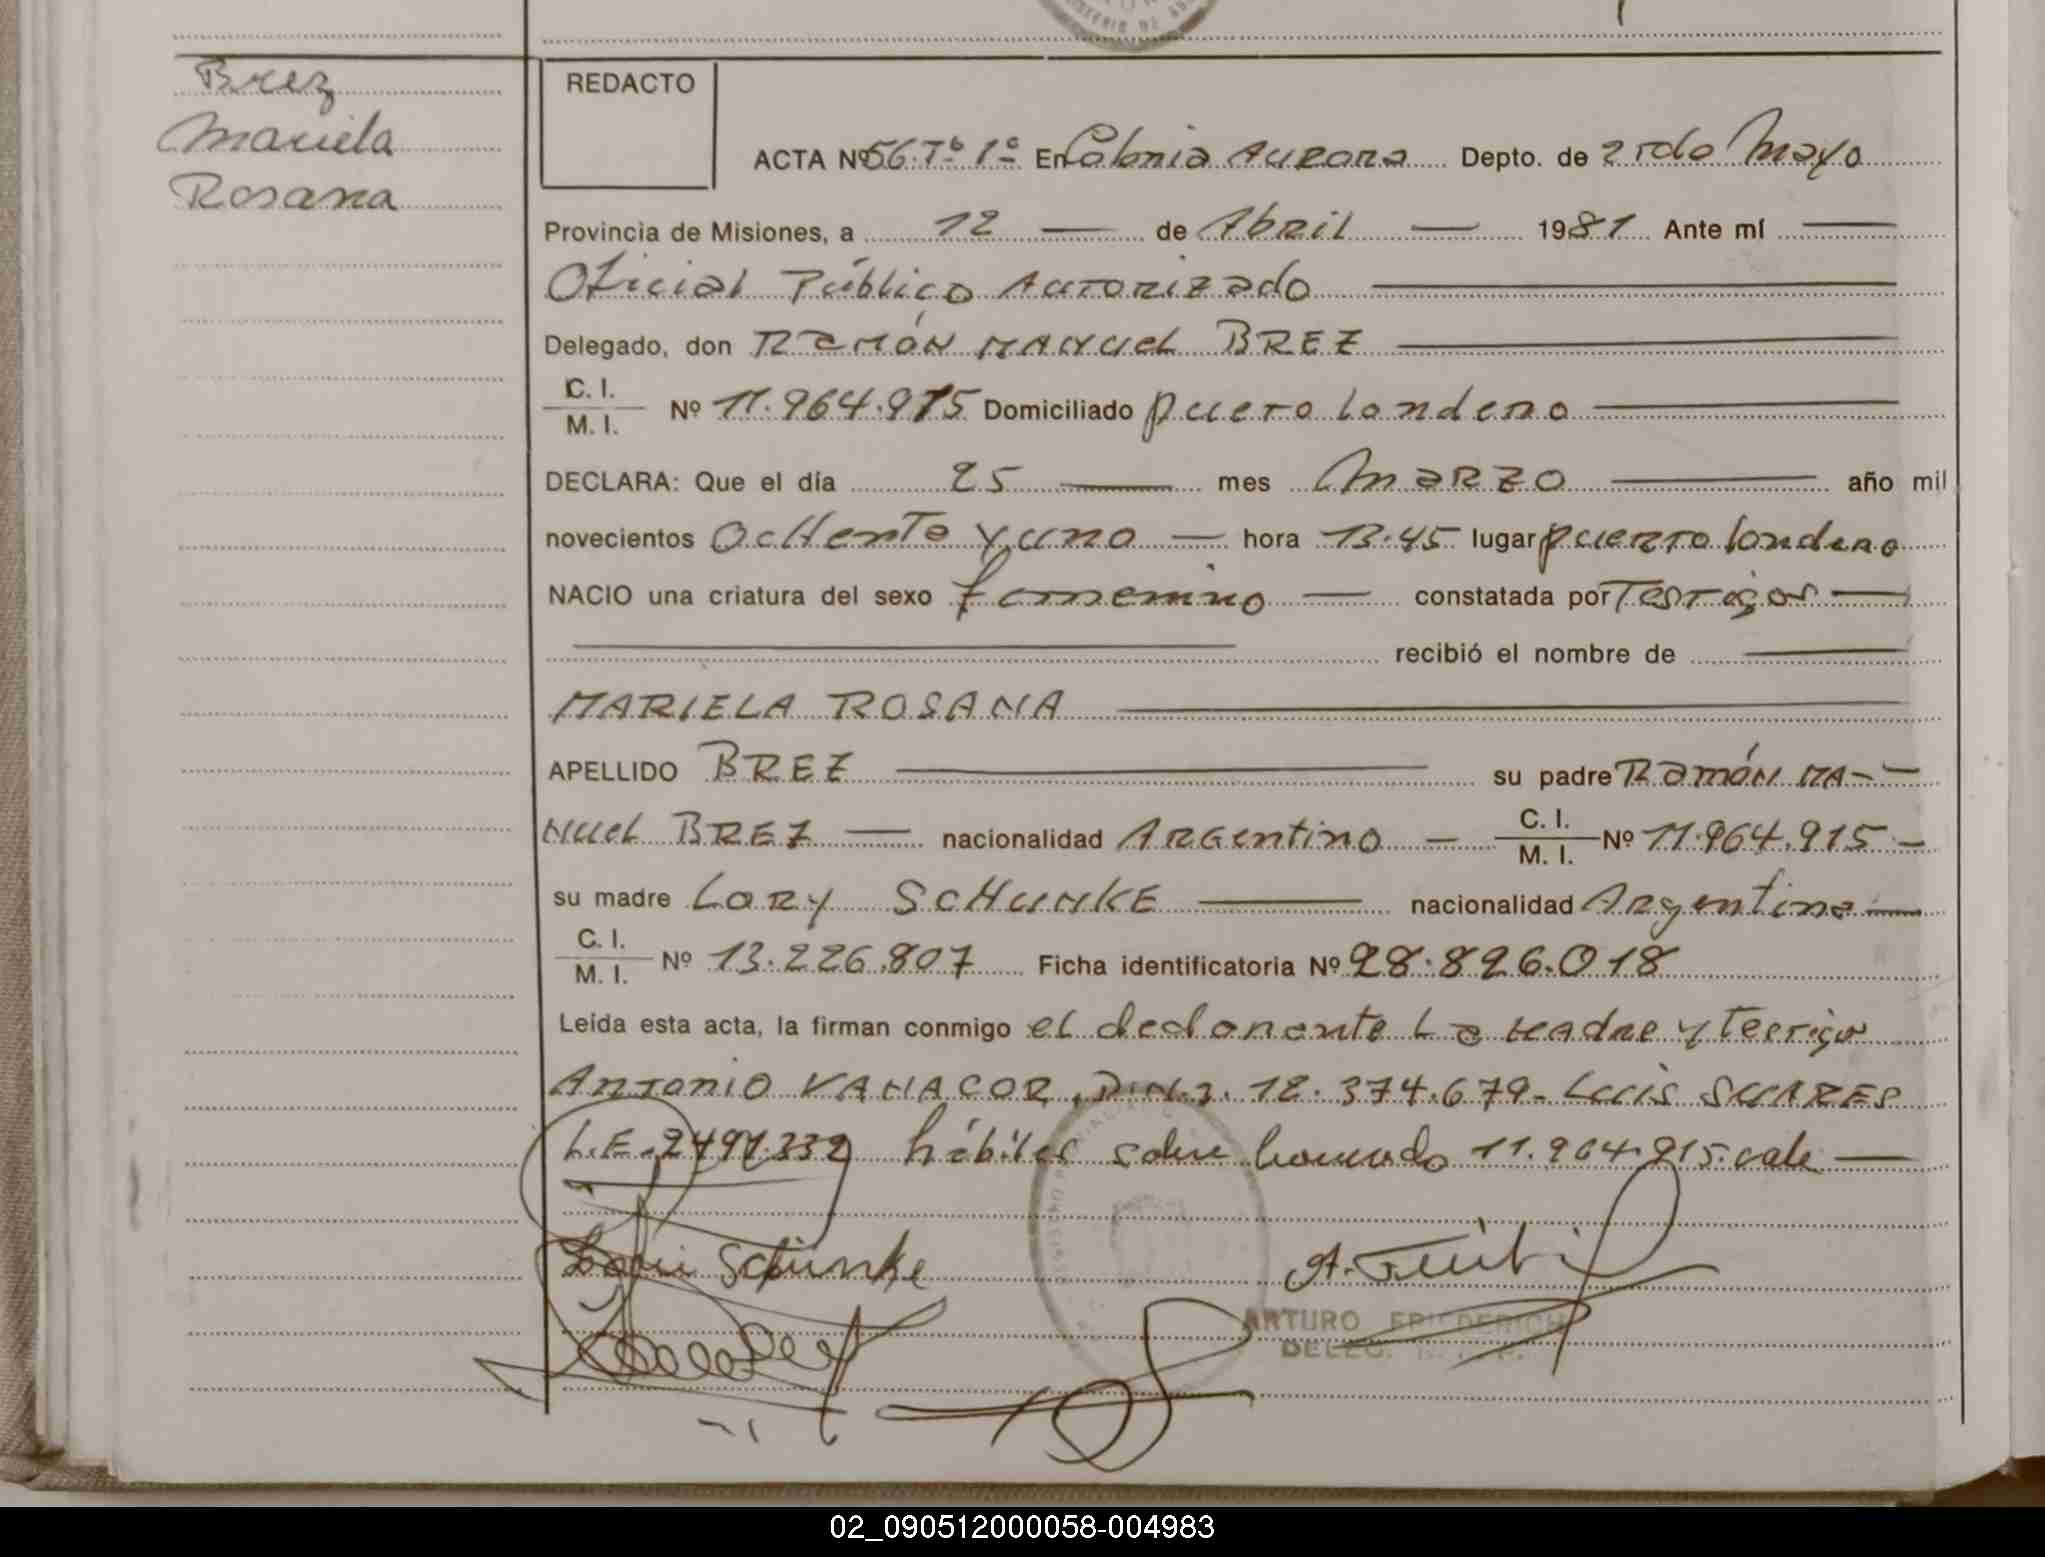 Brez
Mariela
Rosana
REDACTO
ACTA Nº 56. Tº 1º En Colonia Aurora Depto. de 25 de Mayo
Provincia de Misiones, a 12 — de Abril — 1981 Ante mí —
Oficial Público Autorizado —
Delegado, don RAMÓN MANUEL BREZ —
C. I.
M. I. Nº 11.964.915 Domiciliado puerto londero —
DECLARA: Que el día 25 — mes MARZO — año mil
novecientos OcHenta y uno — hora 13.45 lugar puerto londero
NACIO una criatura del sexo femenino — constatada por Testigos —
— recibió el nombre de —
MARIELA ROSANA —
APELLIDO BREZ — su padre Ramón MA-
NUEL BREZ — nacionalidad Argentino — C. I.
M. I. Nº 11.964.915 —
su madre Lory SCHUNKE — nacionalidad Argentina —
C. I.
M. I. Nº 13.226.807 Ficha identificatoria Nº 28.826.018
Leída esta acta, la firman conmigo el declarante La Madre y testigos
ANTONIO VANACOR, D.N.I. 12.374.679 - Luis SUARES
L.E. 2491.332 hábiles sobre borrado 11.964.915. vale —
Schünke
ARTURO
DELEG.
02_090512000058-004983